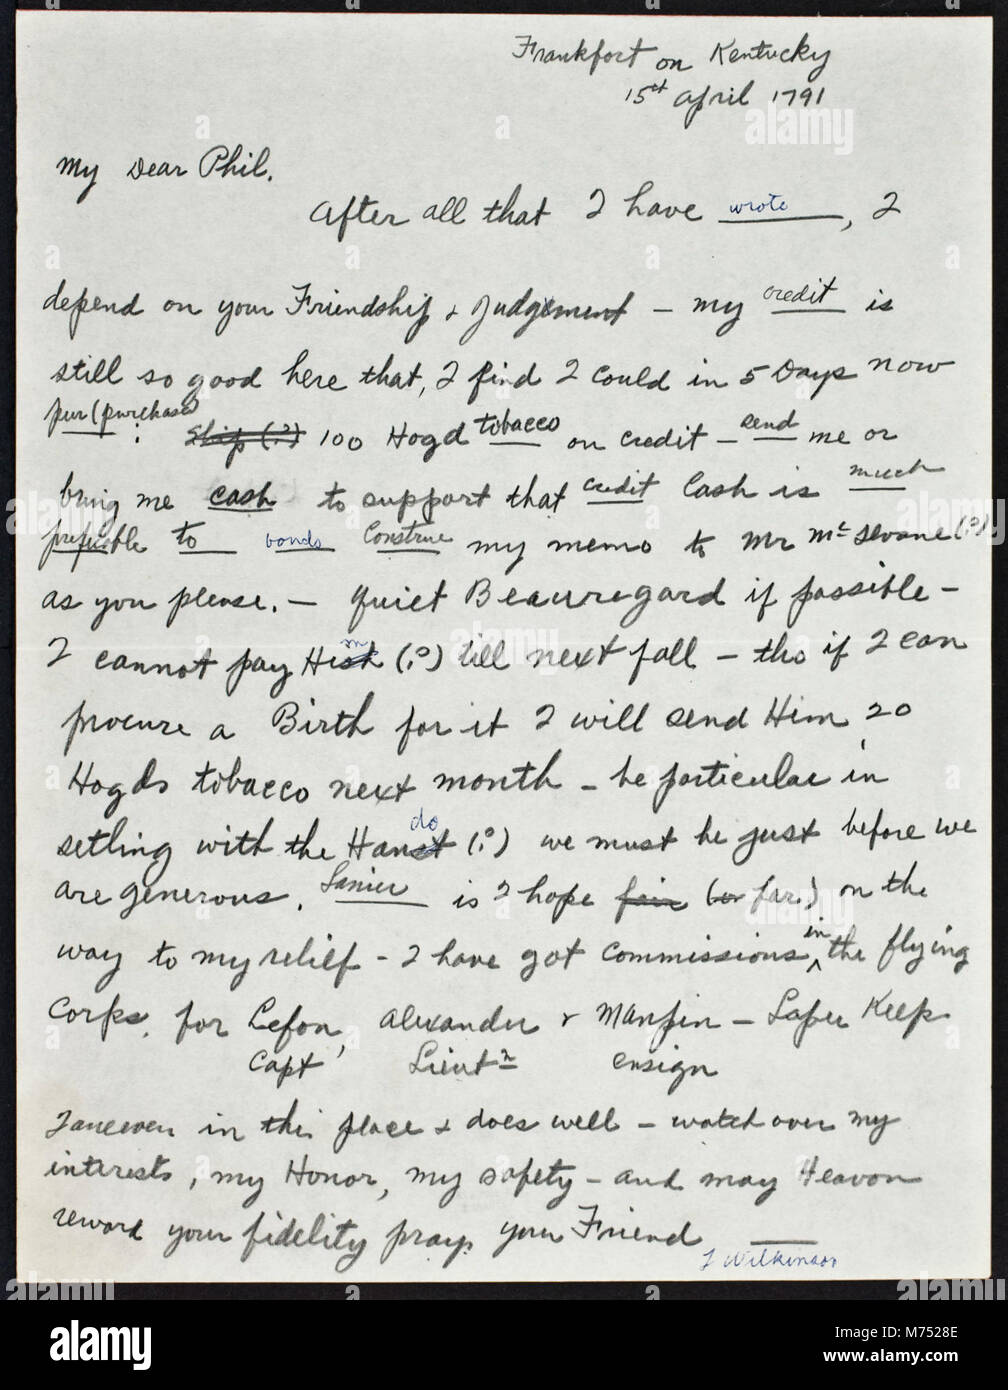 Frankfort on Kentucky
15th April 1791
My Dear Phil.
After all that I have wrote, I
depend on your Friendship & Judgement - my credit is
still so good here that, I find I could in 5 Days now
pur (purchase) : Ship (?) 100 Hogd tobacco on credit - send me or
bring me cash to support that credit Cash is much
prefible to bonds Construe my memo to Mr
as you please. - quiet Beauregard if possible -
I cannot pay Him (?) till next fall - tho if I can
procure a Birth for it I will send Him 20
Hogds tobacco next month - be particular in
settling with the (?) we must be just before we
are generous. Lanier is I hope fair (or far) on the
way to my relief - I have got commissions in the flying
Corps, for Lefon, Alexander & - Keep
Capt Lieut ensign
in this place & does well - watch over my
interests, my Honor, my safety - and may Heavon
reward your fidelity prays your Friend
J Wilkinson
alamy
a
alamy stock photo
M7528E
www.alamy.com